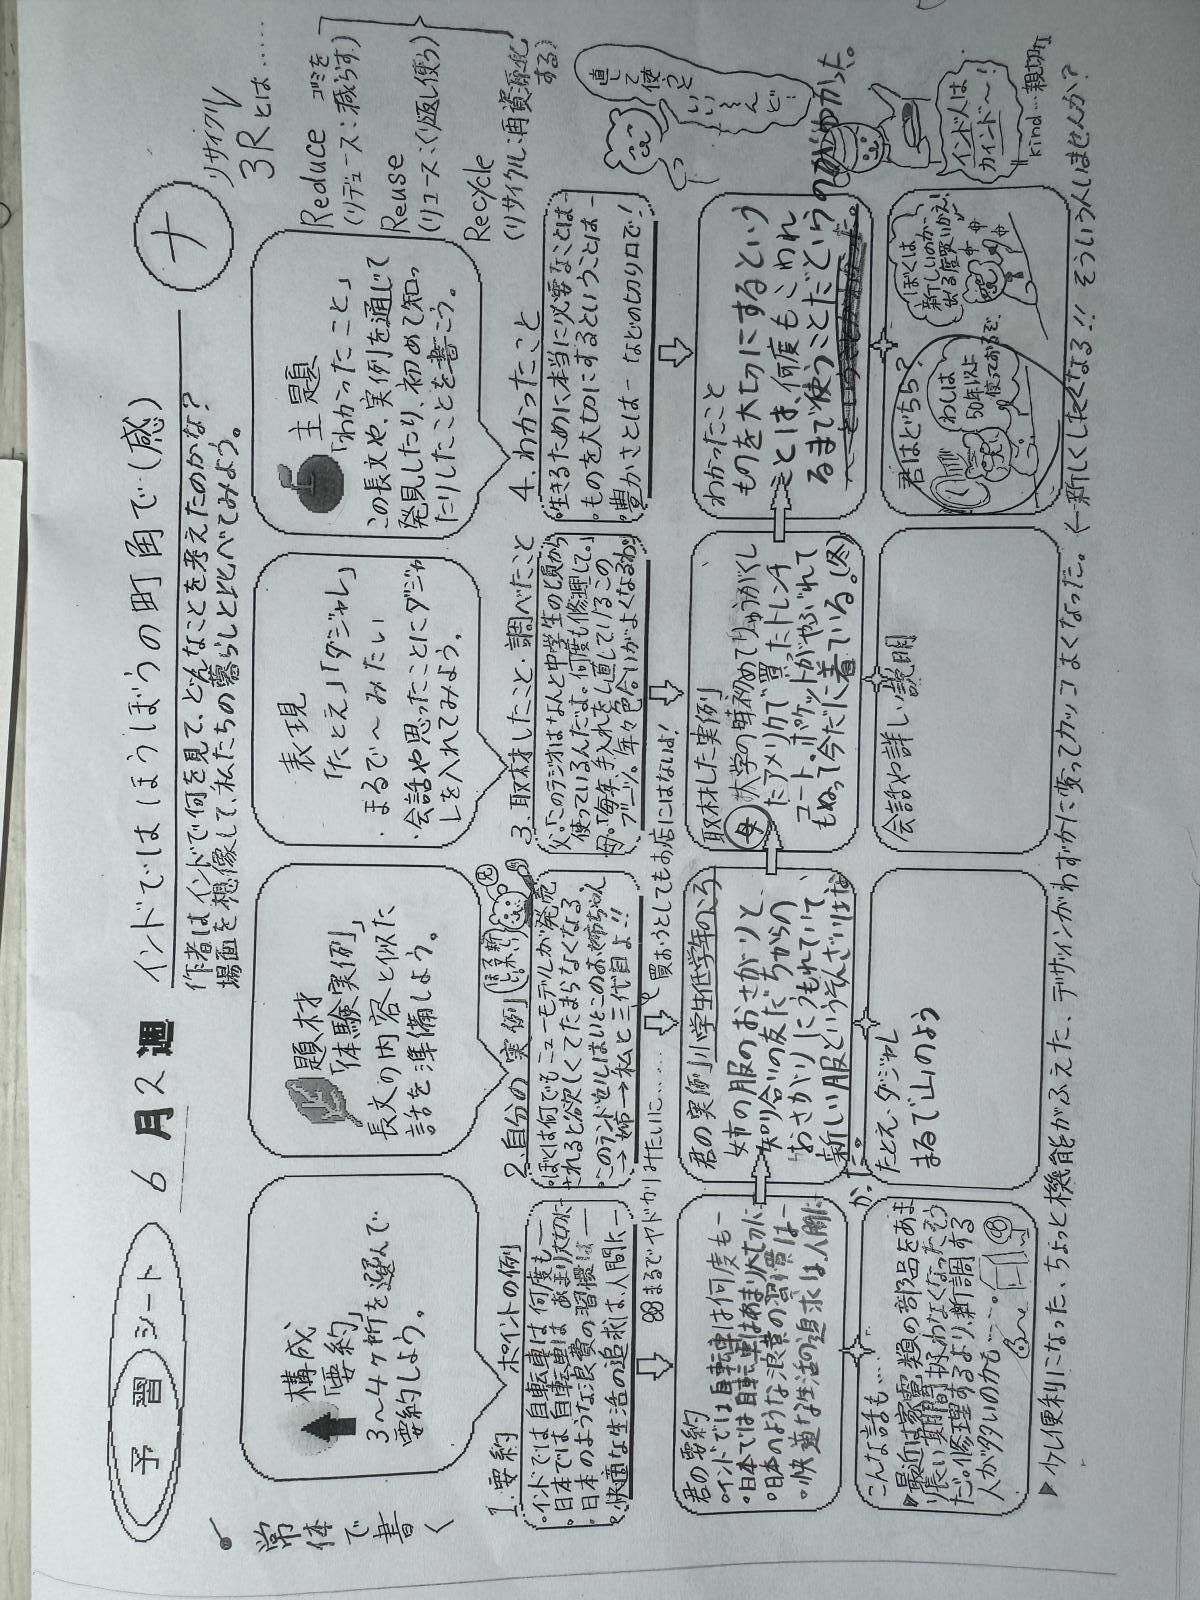 予習シート
6月2週
インドではほうしぼうの町角で…(感)
ナ
作者はインドで何を見て、どんなことを考えたのかな?
場面を想像して、私たちの暮らしと比べてみよう。
常体で書く
構成
「要約」
3~4ヶ所を選んで
要約しよう。
題材
「体験実例」
長文の内容と似た
話を準備しよう。
表現
「たとえ」「ダジャレ」
・まるで~みたい
・会話や思ったことにダジャ
レを入れてみよう。
主題
「わかったこと」
この長文や、実例を通じて
発見したり、初めて知っ
たりしたことを書こう。
リサイクル
3Rとは……
Reduce ゴミを
(リデュース:減らす)
Reuse
(リユース:くり返し使う)
Recycle
(リサイクル:再資源化
する)
1.要約 ポイントの例
・インドでは自転車は何度も―
・日本では自転車はあまり大切に―
・日本のような浪費の習慣は―
・快適な生活の追求は、人間に―
2.自分の実例
・ぼくは何でもニューモデルが発売
されると欲しくてたまらなくなる
・このランドセルはいとこのお姉ちゃん
→姉→私と三代目よ!!
3.取材したこと・調べたこと
父「このラジオはなんと中学生の頃から
使っているんだよ。何度も修理して。」
母「毎年、手入れをし直しているこの
ブーツ。年々色合いがよくなるわ。
4.わかったこと
・生きるために本当に必要なことは―
・ものを大切にするということは―
・豊かさとは― などの切り口で!
まるでヤドカリみたいに……
買おうとしてもお店にはないよ!
直して使うといいもんだ!
君の要約
・インドでは自転車は何度も―
・日本では自転車はあまり大切に
・日本のような浪費の習慣は―
・快適な生活の追求は、人間に
君の実例 小学生低学年のころ
姉の服のおさがりと、
知り合いの友だちからの
おさがりにうもれていて、
新しい服というそんざいはな
か。
取材した実例
母 大学の時初めてりゅうがくし
たアメリカで買ったトレンチ
コート、ポケットがやぶれて
もぬって今だに着ている。(冬)
わかったこと
ものを大切にするという
ことは、何度もこわれ
るまで使うことだというのがわかった。
インド人は
カインド~!
kind…親切
こんな話も…
最近は家電類の部品をあま
り長い期間扱わなくなったそう
だ。修理するより、新調する
人が多いのかも…。
たとえ、ダジャレ
まるで山のよう
会話や詳しい説明
君はどちら?
わしは
50年以上
使っておるぞ。
ぼくは
新しいのが
出る度買いかえ!
▶少し便利になった、ちょっと機能がふえた、デザインがわずかに変ってカッコよくなった。←新しくしたくなる!!そういう人いませんか?